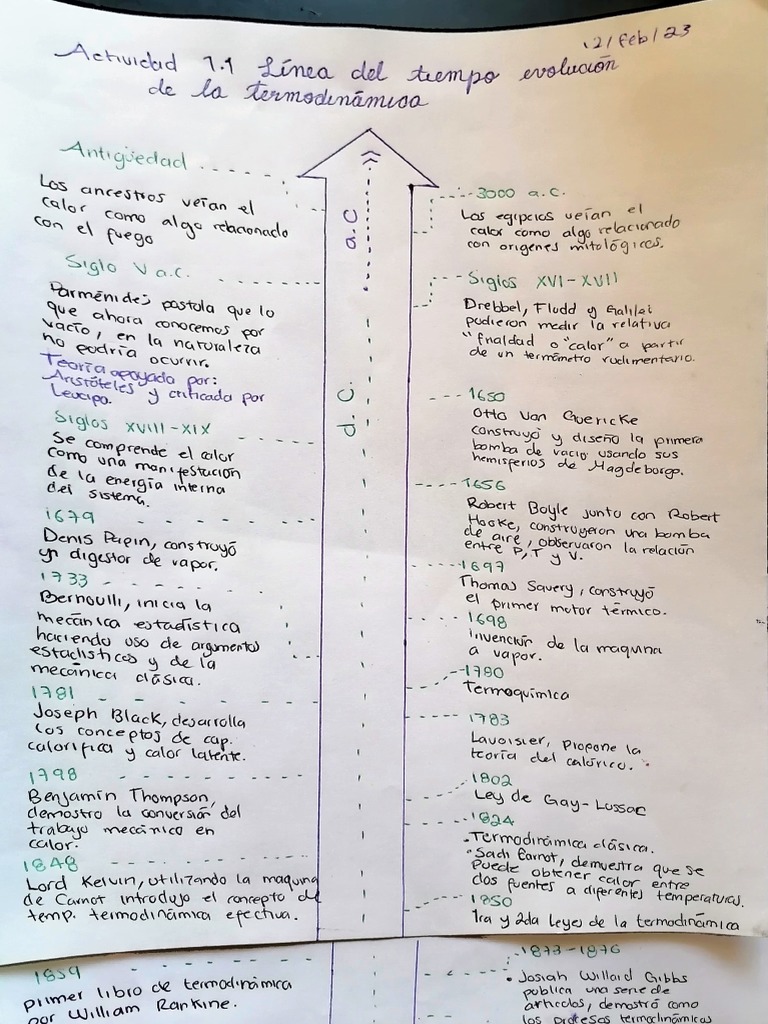 12/feb/23
Actividad 1.1 Línea del tiempo evolución
de la termodinámica
Antigüedad
Los ancestros veían el
calor como algo relacionado
con el fuego
a.C
3000 a.C.
Los egipcios veían el
calor como algo relacionado
con origenes mitológicos.
Siglo V a.c.
Parménides postula que lo
que ahora conocemos por
vacío, en la naturaleza
no podría ocurrir.
Teoría apoyado por:
Aristóteles y criticada por
Leucipo.
Siglos XVI-XVII
Drebbel, Fludd y Galilei
pudieron medir la relativa
"frialdad o "calor" a partir
de un termómetro rudimentario.
d.C.
Siglos XVIII-XIX
Se comprende el calor
como una manifestación
de la energía interna
del sistema.
1650
Otto Van Guericke
construyó y diseño la primera
bomba de vacío usando sus
hemisferios de Magdeborgo.
1656
Robert Boyle junto con Robert
Hooke, construyeron una bomba
de aire, observaron la relación
entre P, T y V.
1679
Denis Papin, construyó
un digestor de vapor.
1697
Thomas Savery, construyó
el primer motor térmico.
1698
invención de la maquina
a vapor.
1733
Bernoulli, inicia la
mecánica estadística
haciendo uso de argumentos
estadísticos y de la
mecánica clásica.
1780
Termoquímica
1781
Joseph Black, desarrolla
los conceptos de cap.
calorífica y calor latente.
1783
Lavoisier, Propone la
teoría del calórico.
1798
Benjamín Thompson,
demostro la conversión del
trabajo mecánico en
calor.
1802
Ley de Gay-Lussac
1824
• Termodinámica clásica.
• Sadi Carnot, demuestra que se
puede obtener calor entre
dos fuentes a diferentes temperaturas.
1848
Lord Kelvin, utilizando la maquina
de Carnot introdujo el concepto de
temp. termodinámica efectiva.
1850
1ra y 2da Leyes de la termodinámica
1859
primer libro de termodinámica
por William Rankine.
1873-1876
• Josiah Willard Gibbs
publica una serie de
artículos, demostró como
los procesos termodinámicos